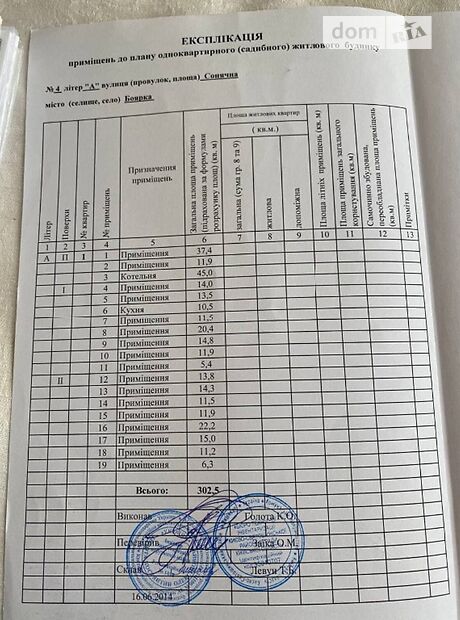 dom RIA
ЕКСПЛІКАЦІЯ
приміщень до плану одноквартирного (садибного) житлового будинку
№ 4 літер "А" вулиця (провулок, площа) Сонячна
місто (селище, село) Боярка
Літер
Поверхи
№ квартир
№ приміщень
Призначення приміщень
Загальна площа приміщень (підрахована за формулами розрахунку площ) (кв. м)
Площа житлових квартир
( кв.м.)
загальна (сума гр. 8 та 9)
житлова
допоміжна
Площа літніх приміщень (кв. м)
Площа приміщень загального користування (кв.м)
Самочинно збудована, переобладнана площа приміщень (кв.м)
Примітки
1 2 3 4 5 6 7 8 9 10 11 12 13
А П 1 1 Приміщення 37,4
2 Приміщення 11,9
3 Котельня 45,0
I 4 Приміщення 14,0
5 Приміщення 13,5
6 Кухня 10,5
7 Приміщення 11,5
8 Приміщення 20,4
9 Приміщення 14,8
10 Приміщення 11,9
11 Приміщення 5,4
II 12 Приміщення 13,8
13 Приміщення 14,3
14 Приміщення 11,5
15 Приміщення 11,9
16 Приміщення 22,2
17 Приміщення 15,0
18 Приміщення 11,2
19 Приміщення 6,3
Всього: 302,5
Виконав Голота К.О.
Перевірив Заїка О.М.
Склав Левун Т.Б.
16.06.2014